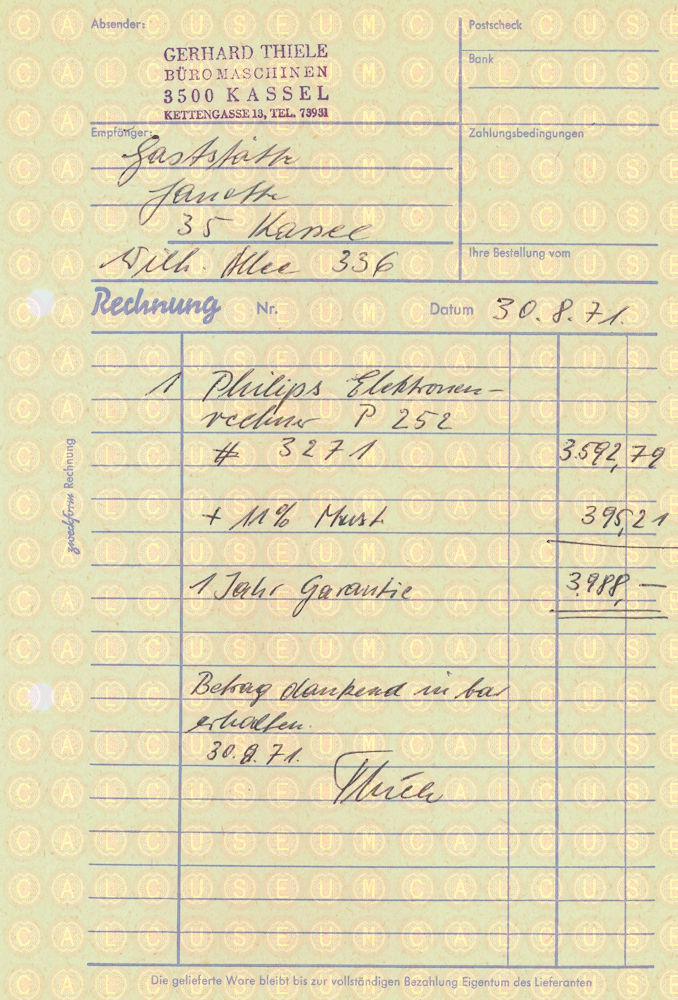 Absender:
GERHARD THIELE
BÜROMASCHINEN
3500 KASSEL
KETTENGASSE 13, TEL. 73931
Postscheck
Bank
Empfänger:
Gaststätte
35 Kassel
Wilh. Allee 336
Zahlungsbedingungen
Ihre Bestellung vom
Rechnung Nr. Datum 30.8.71.
1 Philips Elektronen-
rechner P 252
# 3271 3.592,79
+ 11% Mwst 395,21
1 Jahr Garantie 3.988,—
Betrag dankend in bar
erhalten.
30.8.71.
Thiele
zweckform Rechnung
Die gelieferte Ware bleibt bis zur vollständigen Bezahlung Eigentum des Lieferanten
CALCUSEUM